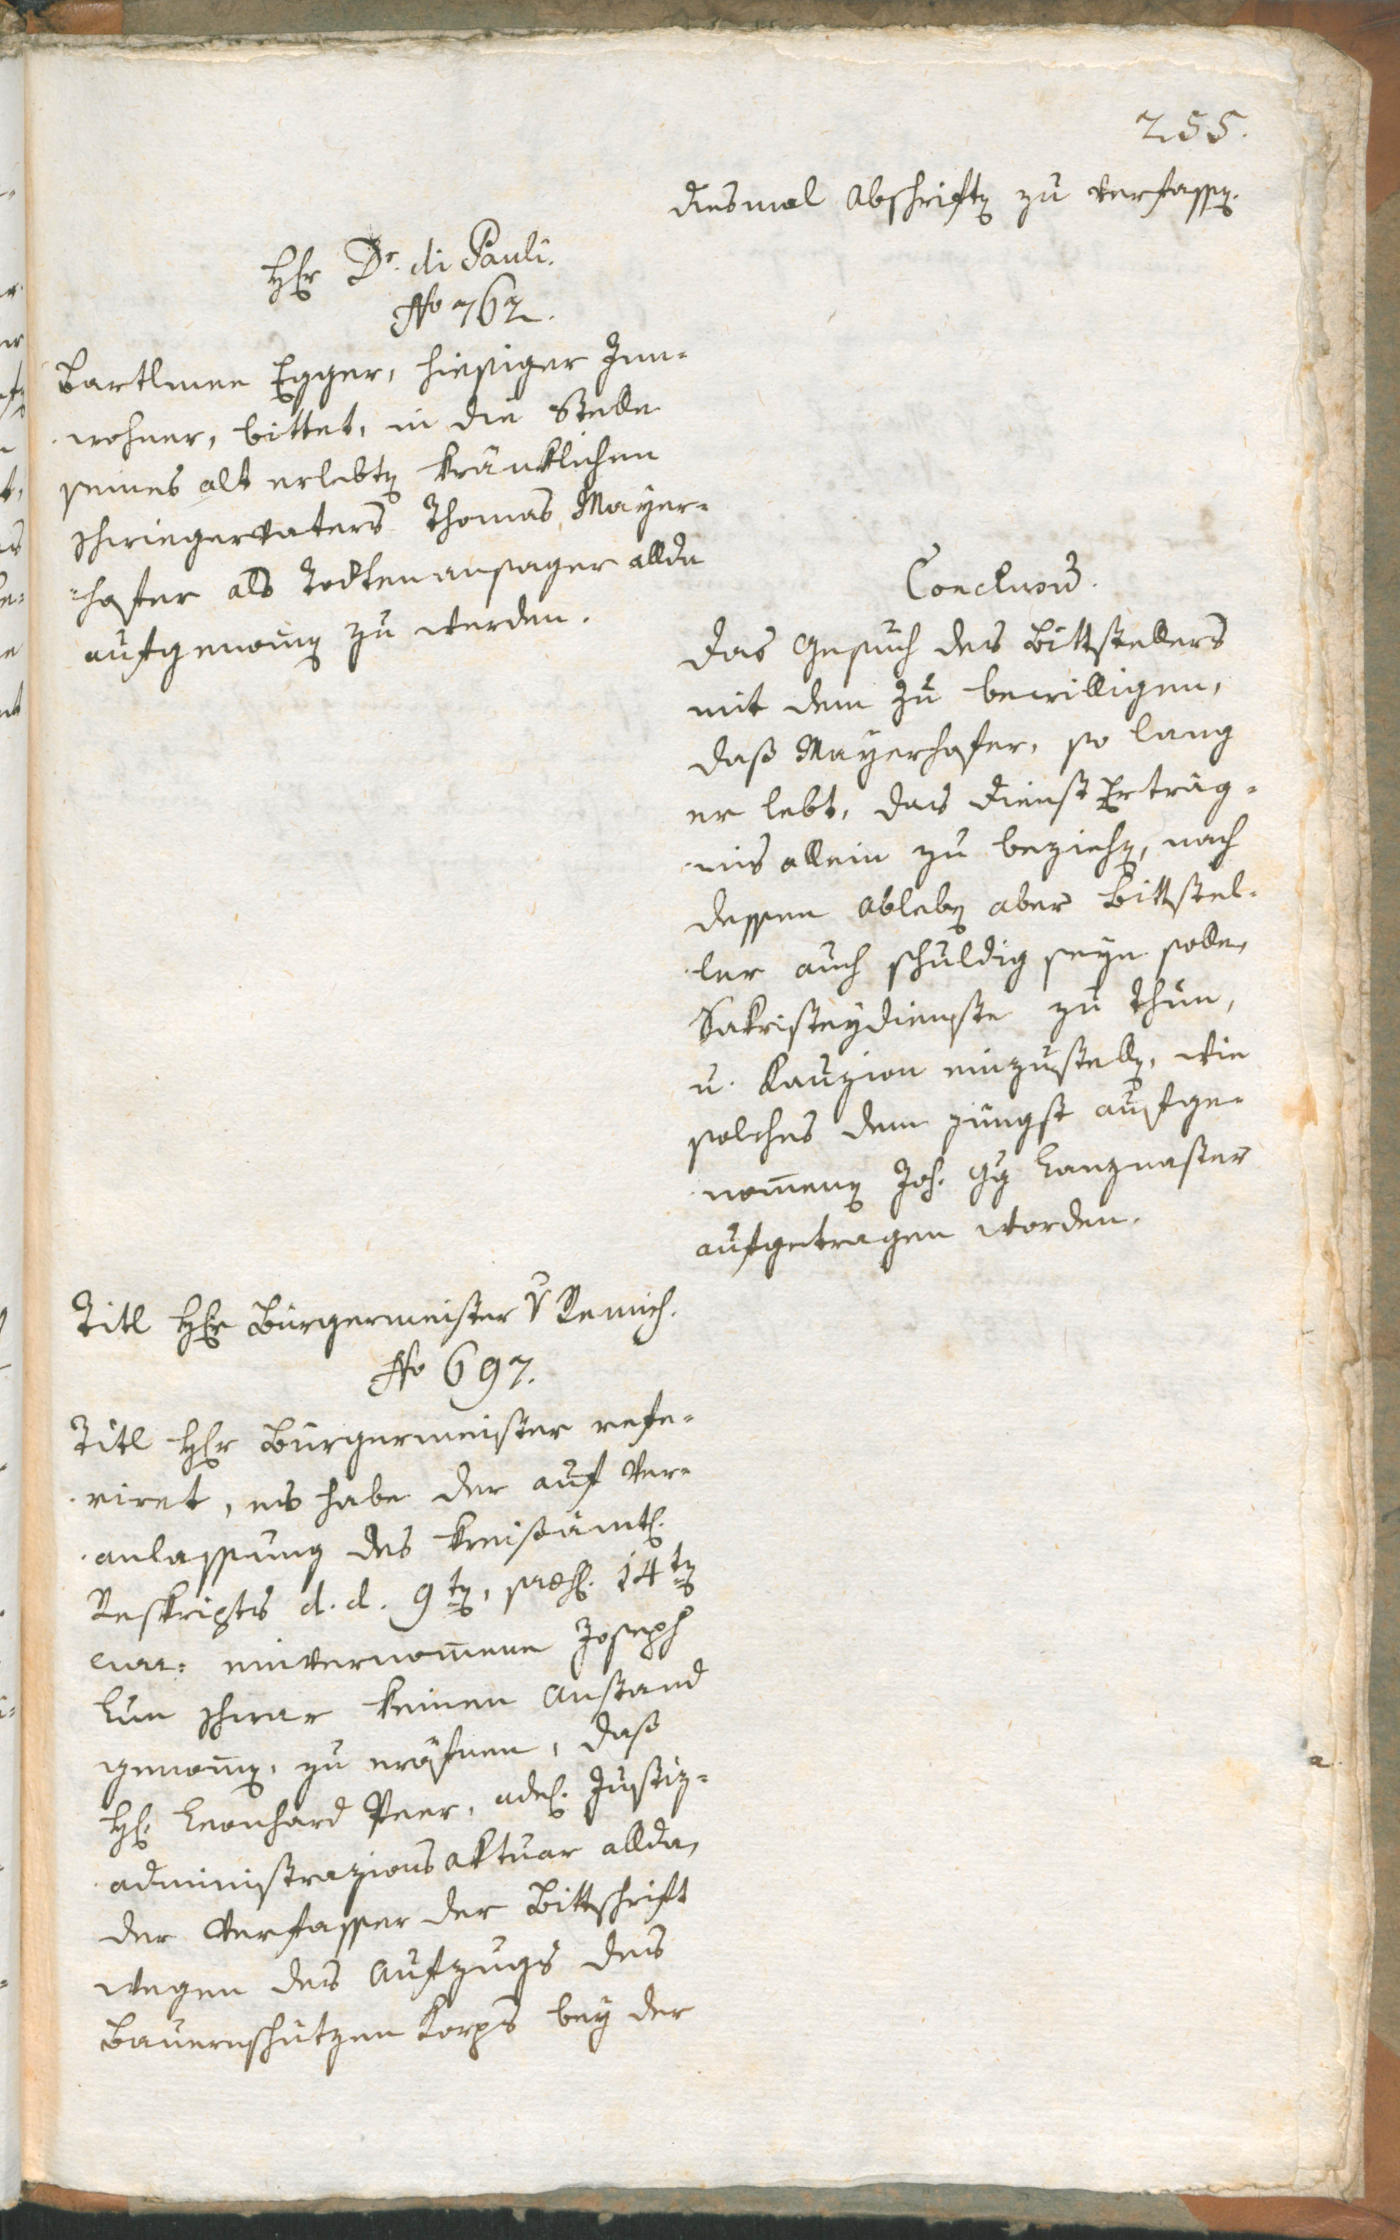 255.
diesmal Abschriften zu verfassen.
Herr Dr. di Pauli.
No 762.
Bartlmee Egger, hiesiger Inn-
wohner, bittet, in die Stelle
seines alt erlebten kränklichen
Schwiegervaters Thomas Mayer-
hofer als Todtenansager allda
aufgenomen zu werden.
Conclusum.
Das Gesuch des Bittstellers
mit dem zu bewilligen,
daß Mayerhofer, so lang
er lebt, das Dienst Erträg-
nis allein zu beziehen, nach
dessen Ableben aber Bittstel-
ler auch schuldig seyn solle,
Sakristeydienste zu thun,
u. Kauzion einzustellen, wie
solches dem jüngst aufge-
nommenen Joh. Gg Lanznaster
aufgetragen worden.
Titl Herr Bürgermeister v Remich.
No 697.
Titl Herr Bürgermeister refe-
riret, es habe der auf Ver-
anlassung des kreisämtl.
Reskripts d. d. 9ten, 14ten
einvernommene Joseph
Lun zwar keinen Anstand
genomen, zu eröfnen, daß
H. Leonhard Peer, adel. Justiz-
administrazions Aktuar allda,
der Verfasser der Bittschrift
wegen des Aufzugs des
Bauernschützen Korps bey der